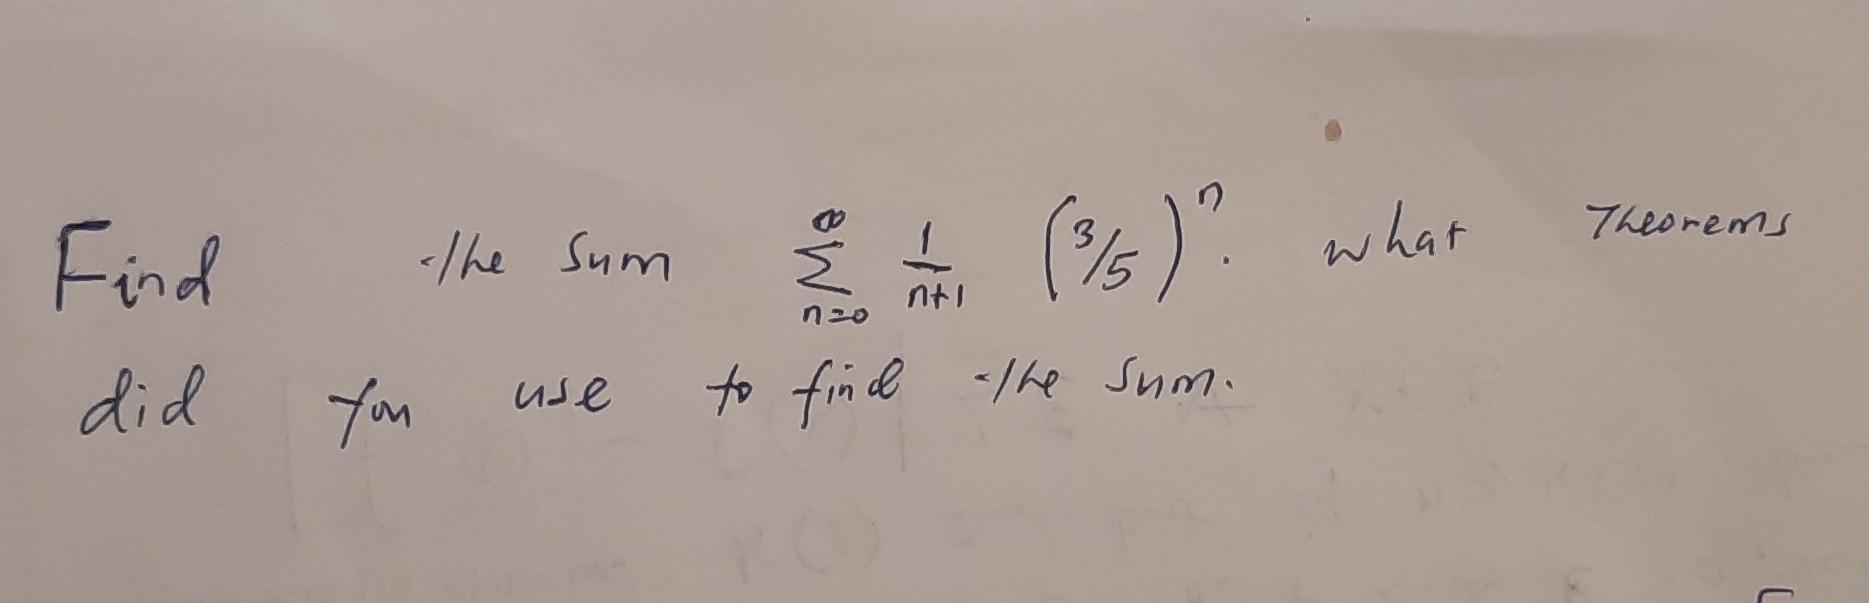 Find the sum ∞ Σ n=0 1/n+1 (3/5)^n. what Theorems
did you use to find the sum.